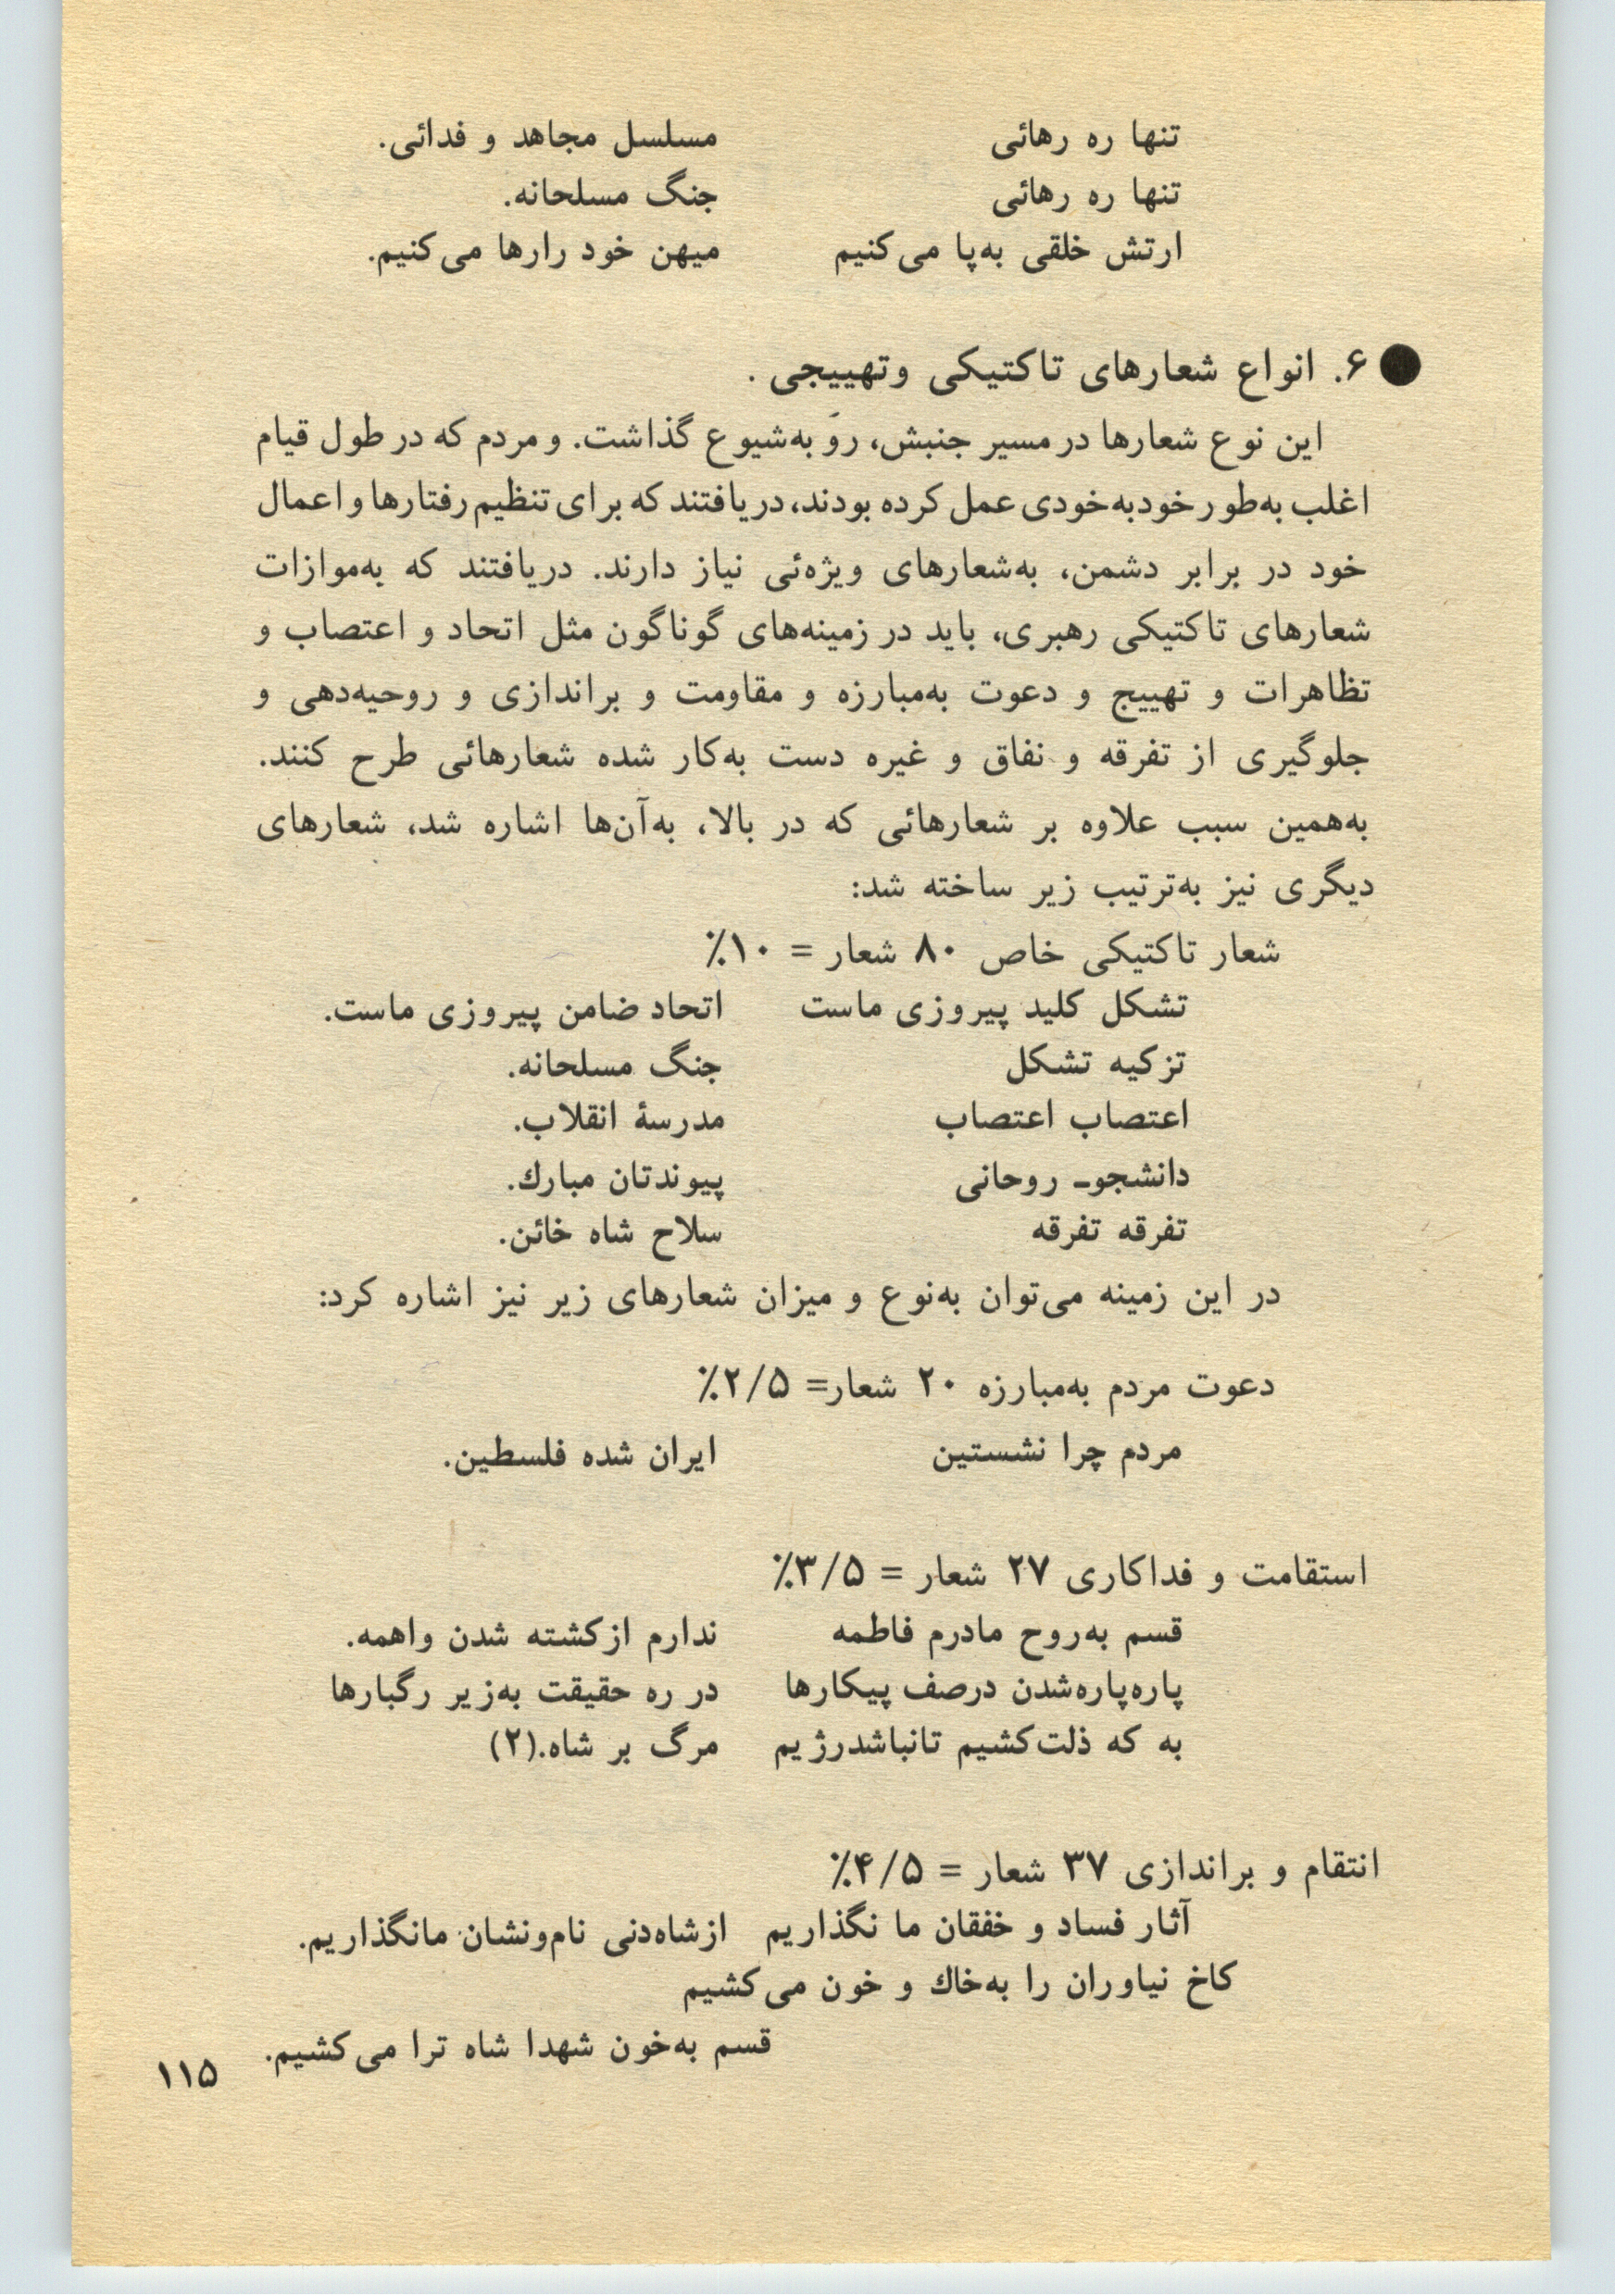 تنها ره رهائی مسلسل مجاهد و فدائی.
تنها ره رهائی جنگ مسلحانه.
ارتش خلقی به‌پا می‌کنیم میهن خود رارها می‌کنیم.
● ۶. انواع شعارهای تاکتیکی وتهییجی.
این نوع شعارها در مسیر جنبش، روَ به‌شیوع گذاشت. و مردم که در طول قیام
اغلب به‌طور خودبه‌خودی عمل کرده بودند، دریافتند که برای تنظیم رفتارها و اعمال
خود در برابر دشمن، به‌شعارهای ویژه‌ئی نیاز دارند. دریافتند که به‌موازات
شعارهای تاکتیکی رهبری، باید در زمینه‌های گوناگون مثل اتحاد و اعتصاب و
تظاهرات و تهییج و دعوت به‌مبارزه و مقاومت و براندازی و روحیه‌دهی و
جلوگیری از تفرقه و نفاق و غیره دست به‌کار شده شعارهائی طرح کنند.
به‌همین سبب علاوه بر شعارهائی که در بالا، به‌آن‌ها اشاره شد، شعارهای
دیگری نیز به‌ترتیب زیر ساخته شد:
شعار تاکتیکی خاص ۸۰ شعار = ۱۰٪
تشکل کلید پیروزی ماست اتحاد ضامن پیروزی ماست.
تزکیه تشکل جنگ مسلحانه.
اعتصاب اعتصاب مدرسهٔ انقلاب.
دانشجوـ روحانی پیوندتان مبارك.
تفرقه تفرقه سلاح شاه خائن.
در این زمینه می‌توان به‌نوع و میزان شعارهای زیر نیز اشاره کرد:
دعوت مردم به‌مبارزه ۲۰ شعار= ۲/۵٪
مردم چرا نشستین ایران شده فلسطین.
استقامت و فداکاری ۲۷ شعار = ۳/۵٪
قسم به‌روح مادرم فاطمه ندارم ازکشته شدن واهمه.
پاره‌پاره‌شدن درصف پیکارها در ره حقیقت به‌زیر رگبارها
به که ذلت‌کشیم تانباشدرژیم مرگ بر شاه.(۲)
انتقام و براندازی ۳۷ شعار = ۴/۵٪
آثار فساد و خفقان ما نگذاریم ازشاه‌دنی نام‌ونشان مانگذاریم.
کاخ نیاوران را به‌خاك و خون می‌کشیم
قسم به‌خون شهدا شاه ترا می‌کشیم.
۱۱۵